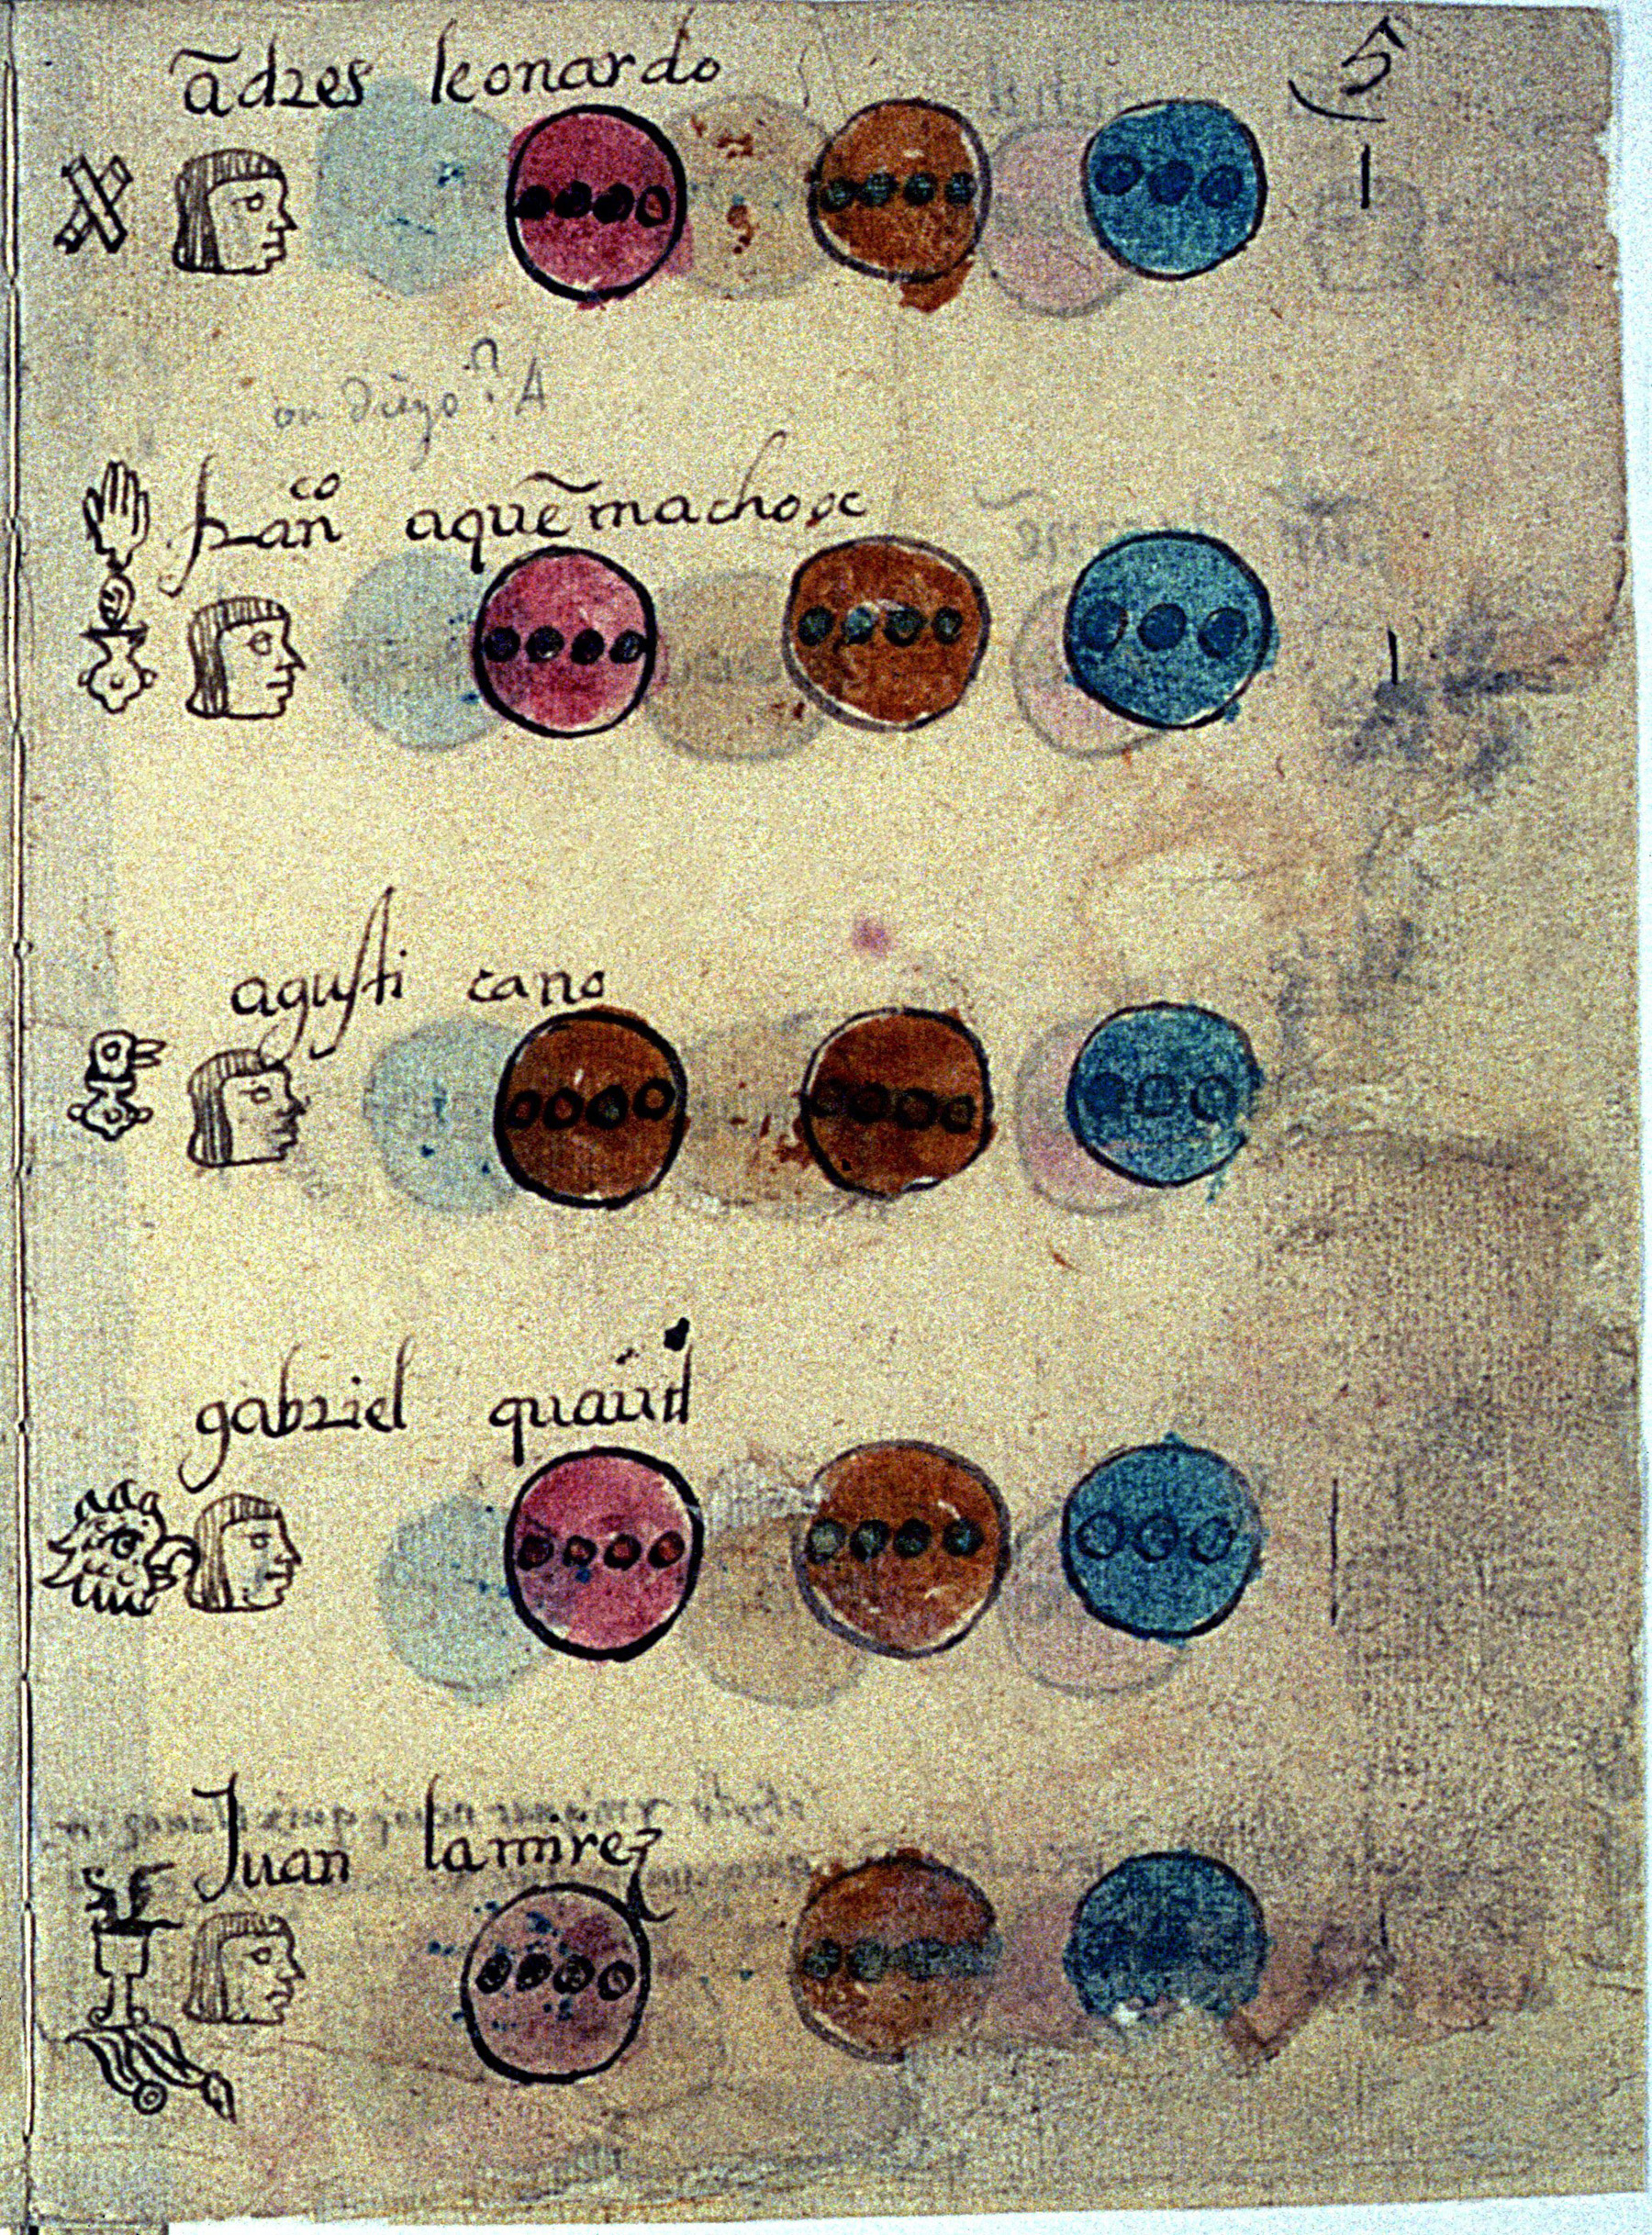 ādres leonardo 5
ou diego? A
franco aquēmachoec
agusti cano
gabriel quautl
Juan lamirez